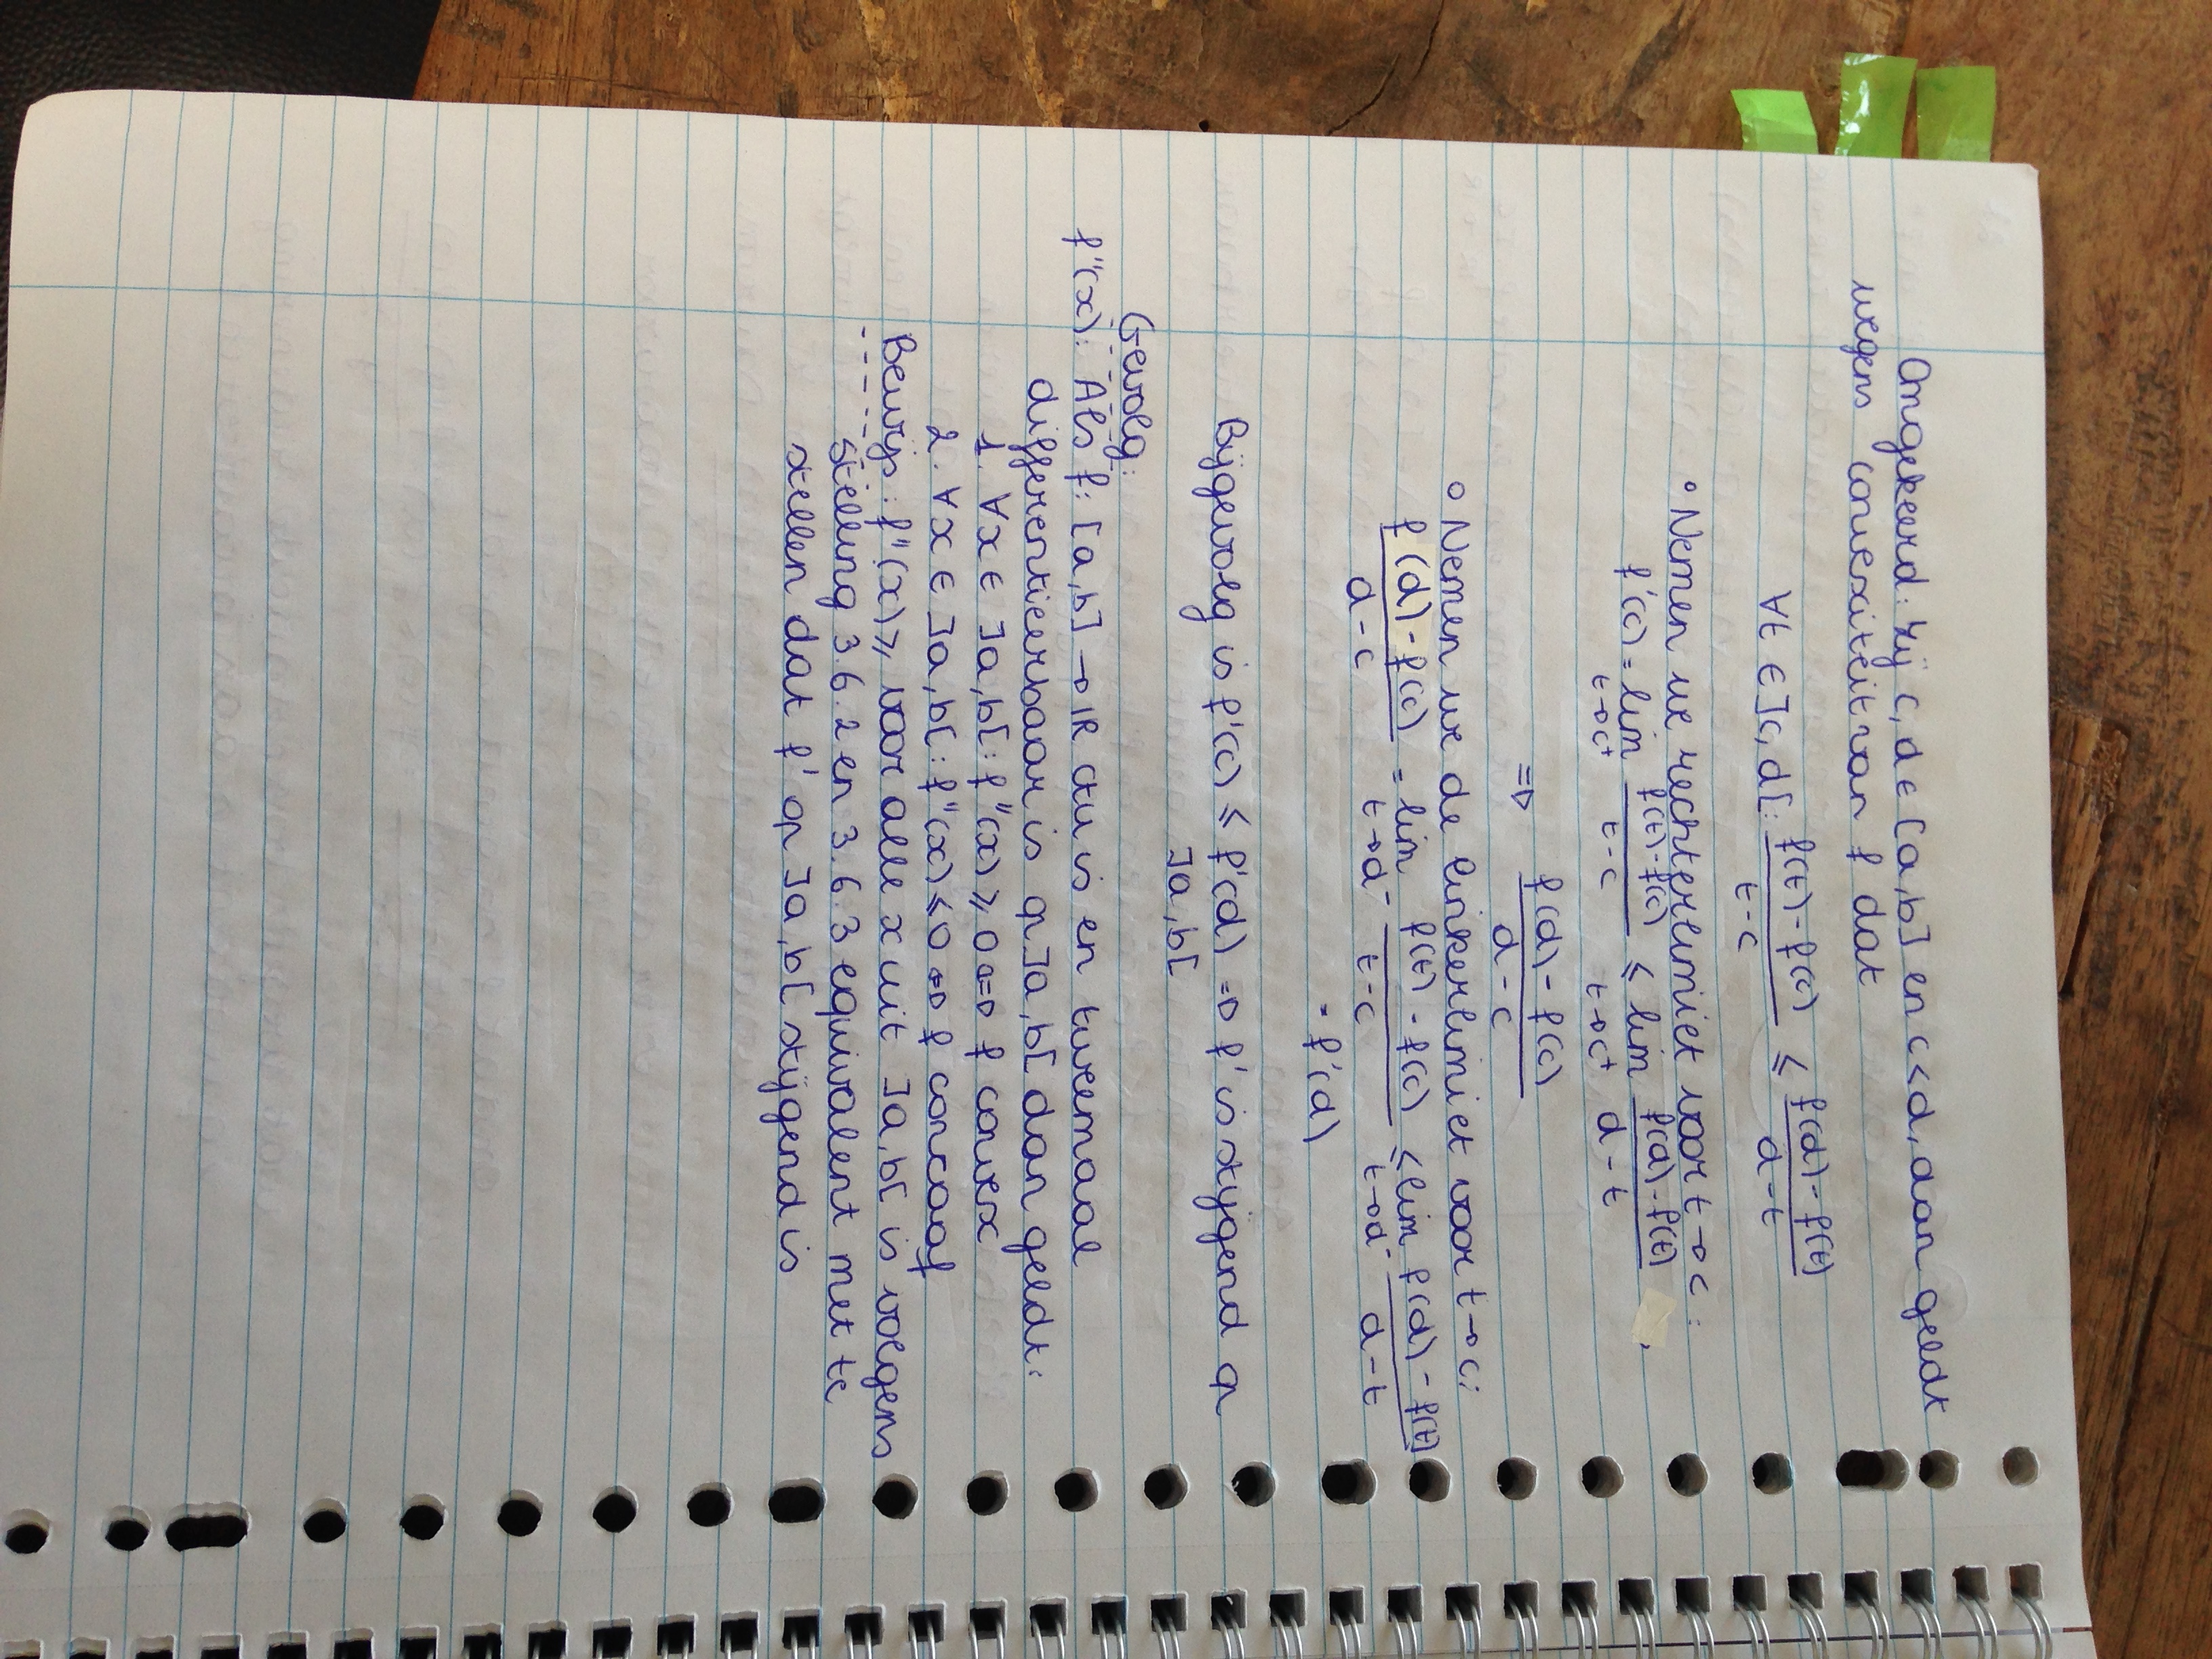 Omgekeerd: zij c, d ∈ [a,b] en c<d, dan geldt
wegens convexiteit van f dat
∀t ∈ ]c, d[: (f(t) - f(c))/(t - c) ≤ (f(d) - f(t))/(d - t)
° Nemen we rechterlimiet voor t→c:
f'(c) = lim t→c⁺ (f(t) - f(c))/(t - c) ≤ lim t→c⁺ (f(d) - f(t))/(d - t)
⇒ (f(d) - f(c))/(d - c)
° Nemen we de linkerlimiet voor t→c:
(f(d) - f(c))/(d - c) = lim t→d⁻ (f(t) - f(c))/(t - c) ≤ lim t→d⁻ (f(d) - f(t))/(d - t)
= f'(d)
Bijgevolg is f'(c) ≤ f'(d) ⇒ f' is stijgend op
]a,b[
Gevolg:
f''(x): Als f: [a,b] → IR ctu is en tweemaal
differentieerbaar is op ]a,b[ dan geldt:
1. ∀x ∈ ]a,b[: f''(x) ≥ 0 ⇔ f convex
2. ∀x ∈ ]a,b[: f''(x) ≤ 0 ⇔ f concaaf
Bewijs: f''(x) ≥ voor alle x uit ]a,b[ is volgens
stelling 3.6.2 en 3.6.3 equivalent met te
stellen dat f' op ]a,b[ stijgend is